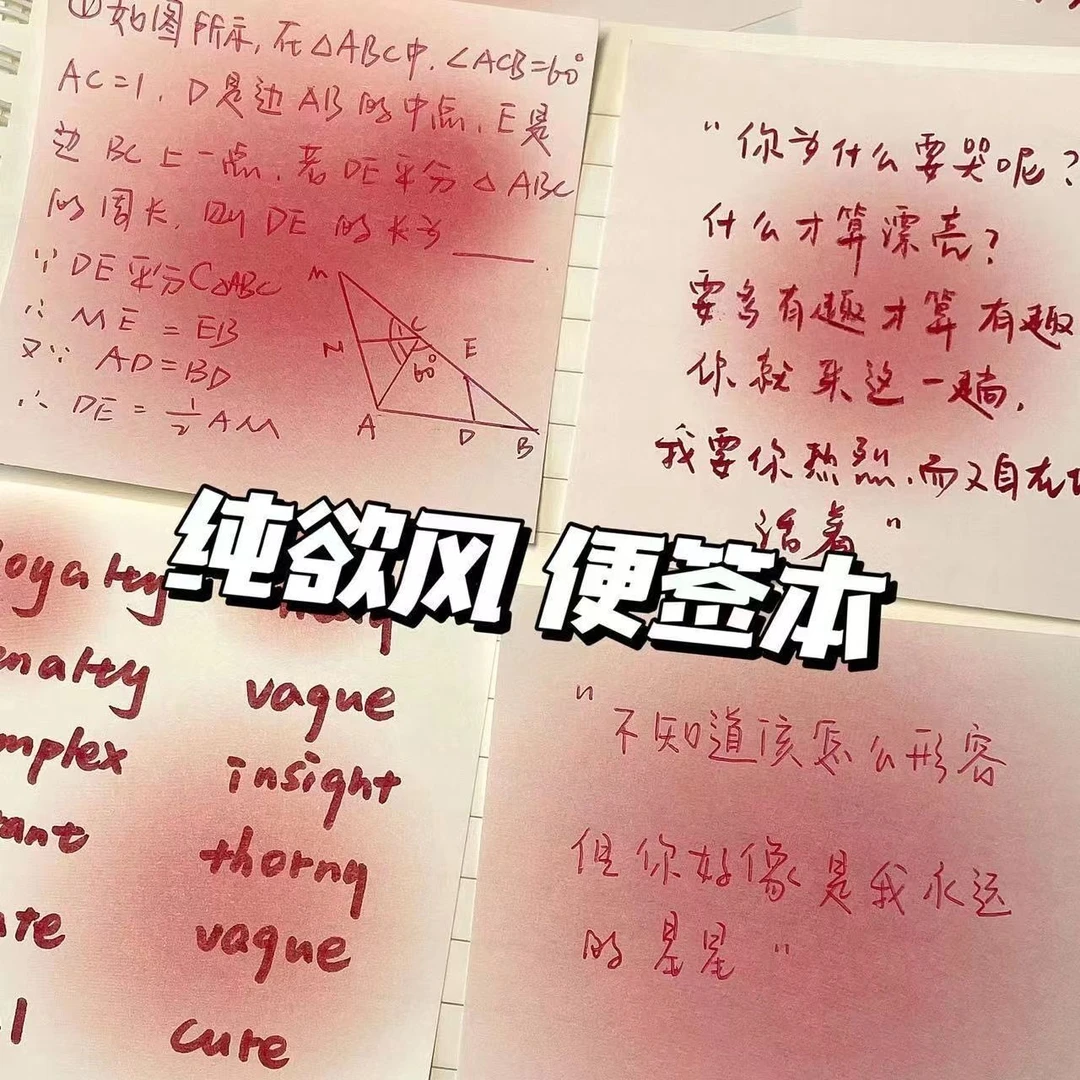 ①如图所示,在△ABC中,∠ACB=60°
AC=1,D是边AB的中点,E是
边BC上一点,若DE平分△ABC
的周长,则DE的长为____.
∵DE平分C△ABC
∴ ME=EB
又∵ AD=BD
∴ DE=1/2AM
M
N
C
60°
E
A
D
B
"你为什么要哭呢?
什么才算漂亮?
要多有趣才算有趣
你就来这一趟,
我要你热烈,而又自在地
活着"
纯欲风 便签本
loyalty
vague
insight
thorny
vague
cure
"不知道该怎么形容
但你好像是我永远
的星星"